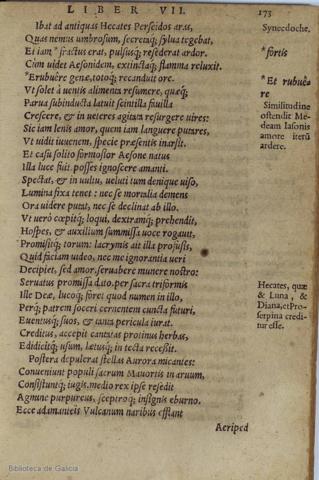 LIBER VII. 173
Ibat ad antiquas Hecates Perseidos aras, Synecdoche.
Quas nemus umbrosum, secretaq́; sylua tegebat,
Et iam *fractus erat, pulsusq́; resederat ardor. *fortis
Cùm uidet Aesonidem, extinctaq́; flamma reluxit.
*Erubuêre genæ, totoq́; recanduit ore. *Et rubuêre
Vt solet à uentis alimenta resumere, quæq́;
Parua subinducta latuit scintilla fauilla Similitudine
Crescere, & in ueteres agitata resurgere uires: ostendit Medeam Iasonis
Sic iam lenis amor, quem iam languere putares, amore iterũ
Vt uidit iuuenem, specie præsentis inarsit. ardere.
Et casu solito formosior Aesone natus
Illa luce fuit: posses ignoscere amanti.
Spectat, & in uultu, ueluti tum denique uiso,
Lumina fixa tenet: nec se mortalia demens
Ora uidere putat, nec se declinat ab illo.
Vt uerò cœpitq́; loqui, dextramq́; prehendit,
Hospes, & auxilium summissa uoce rogauit,
Promisitq́; torum: lacrymis ait illa profusis,
Quid faciam uideo, nec me ignorantia ueri
Decipiet, sed amor. seruabere munere nostro:
Seruatus promissa dato. per sacra triformis Hecates, quæ
Ille Deæ, lucoq́; foret quod numen in illo, & Luna, &
Perq́; patrem soceri cernentem cuncta futuri, Diana, et Proserpina creditur esse.
Euentusq́; suos, & tanta pericula iurat.
Creditus, accepit cantatas protinus herbas,
Edidicitq́; usum, lætusq́; in tecta recessit.
Postera depulerat stellas Aurora micantes:
Conueniunt populi sacrum Mauortis in aruum,
Consistuntq́; iugis. medio rex ipse resedit
Agmine purpureus, sceptroq́; insignis eburno.
Ecce adamanteis Vulcanum naribus efflant
Aeriped
Biblioteca de Galicia